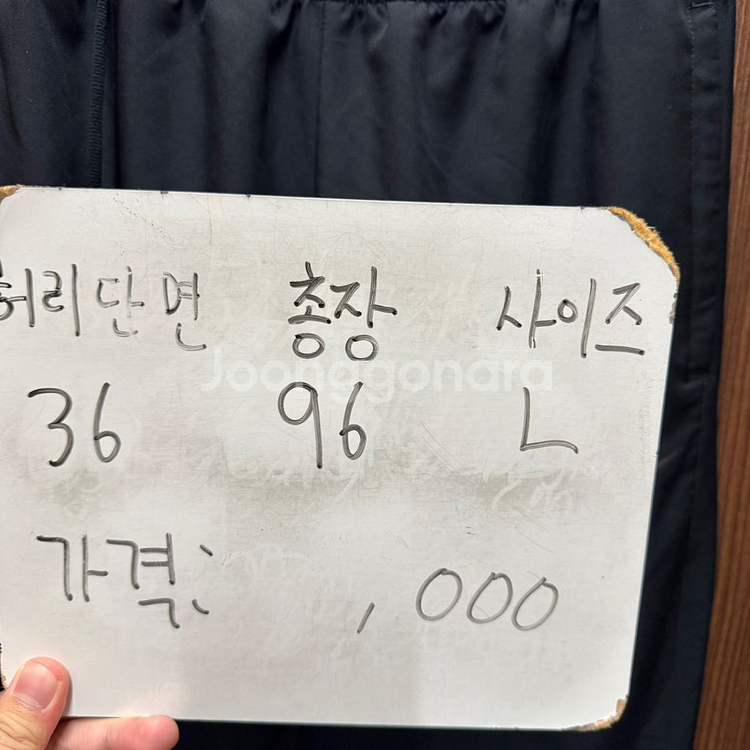 허리단면 총장 사이즈
Joonggonara
36 96 L
가격: ,000